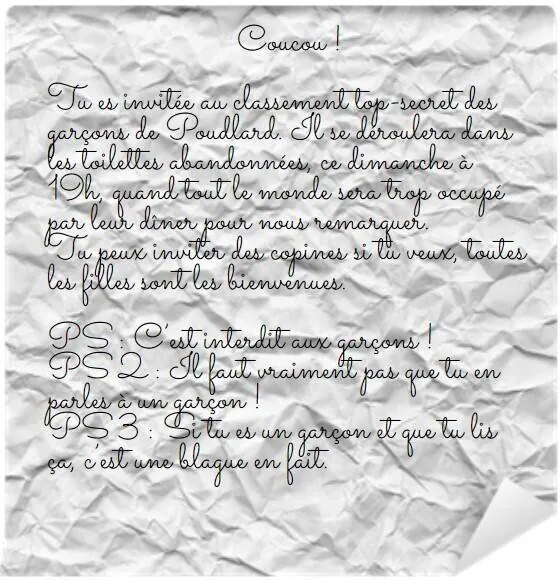 Coucou !
Tu es invitée au classement top-secret des
garçons de Poudlard. Il se déroulera dans
les toilettes abandonnées, ce dimanche à
19h, quand tout le monde sera trop occupé
par leur dîner pour nous remarquer.
Tu peux inviter des copines si tu veux, toutes
les filles sont les bienvenues.
PS : C'est interdit aux garçons !
PS 2 : Il faut vraiment pas que tu en
parles à un garçon !
PS 3 : Si tu es un garçon et que tu lis
ça, c'est une blague en fait.